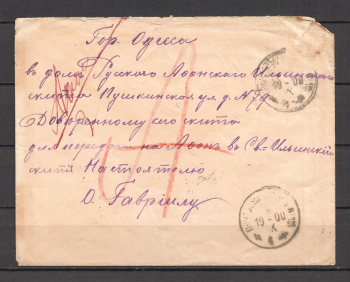 Гор. Одеса
въ домъ Русского Афонского Ильинского
скита Пушкинская ул. д. № 79
Довѣренному сего скита
для передачи на Афонъ въ Св-Ильинскій
скитъ Настоятелю
О. Гавріилу
19-00